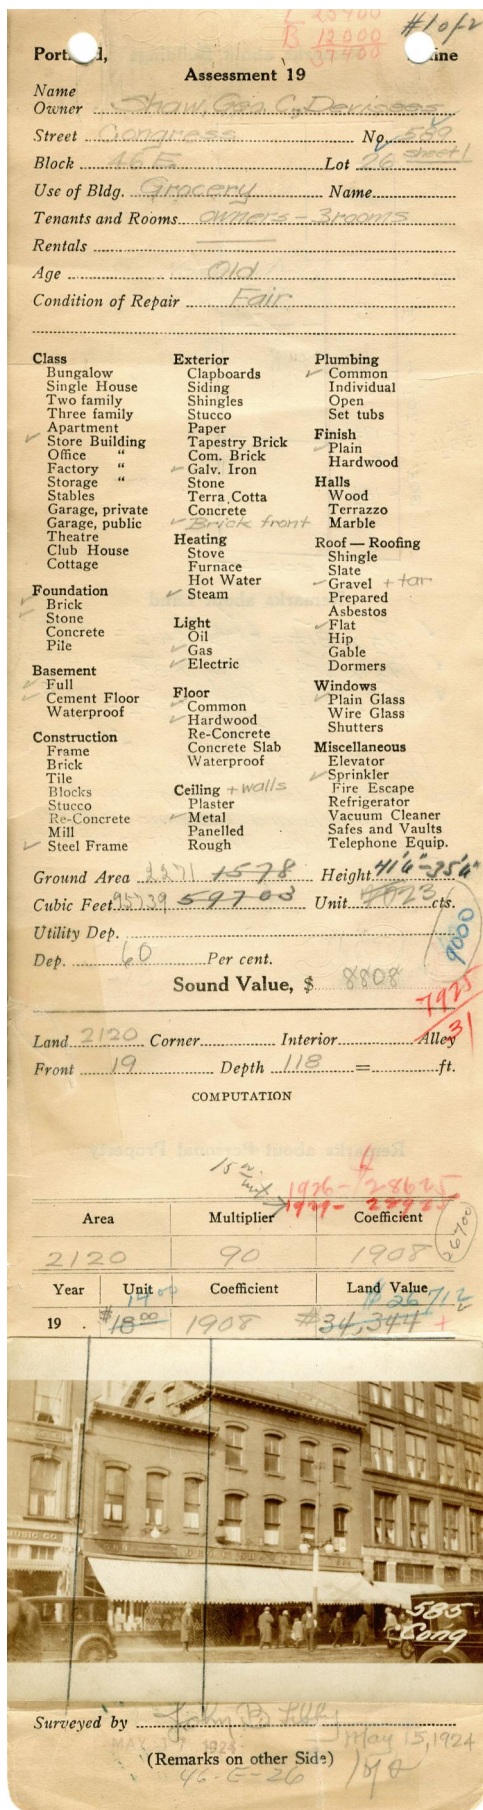 #1 of 2
L 25400
B 12000
37400
Portland, Maine
Assessment 19
Name
Owner Shaw, Geo. C., Devisees
Street Congress No. 589
Block 46E Lot 26 sheet 1
Use of Bldg. Grocery Name
Tenants and Rooms owners – 3 rooms
Rentals
Age Old
Condition of Repair Fair
Class
Bungalow
Single House
Two family
Three family
Apartment
✓ Store Building
Office "
Factory "
Storage "
Stables
Garage, private
Garage, public
Theatre
Club House
Cottage
Foundation
✓ Brick
✓ Stone
Concrete
Pile
Basement
✓ Full
✓ Cement Floor
Waterproof
Construction
Frame
Brick
Tile
Blocks
Stucco
Re-Concrete
Mill
✓ Steel Frame
Exterior
Clapboards
Siding
Shingles
Stucco
Paper
Tapestry Brick
Com. Brick
✓ Galv. Iron
Stone
Terra Cotta
Concrete
✓ Brick front
Heating
Stove
Furnace
Hot Water
✓ Steam
Light
Oil
✓ Gas
✓ Electric
Floor
✓ Common
✓ Hardwood
Re-Concrete
Concrete Slab
Waterproof
Ceiling + walls
Plaster
✓ Metal
Panelled
Rough
Plumbing
✓ Common
Individual
Open
Set tubs
Finish
✓ Plain
Hardwood
Halls
Wood
Terrazzo
Marble
Roof — Roofing
Shingle
Slate
✓ Gravel + tar
Prepared
Asbestos
✓ Flat
Hip
Gable
Dormers
Windows
✓ Plain Glass
Wire Glass
Shutters
Miscellaneous
Elevator
✓ Sprinkler
Fire Escape
Refrigerator
Vacuum Cleaner
Safes and Vaults
Telephone Equip.
Ground Area 2271 1578 Height 41'6"-35'6"
Cubic Feet 95739 59703 Unit cts.
Utility Dep.
9000
Dep. 60 Per cent.
Sound Value, $ 8808
7925
31
Land 2120 Corner Interior Alley
Front 19 Depth 118 = ft.
COMPUTATION
1926-$28625
1929- 28925
Area Multiplier Coefficient
2120 90 1908
26700
Year Unit Coefficient Land Value
14 00 $26712
19 . $18 00 1908 $34,344 +
MUSIC CO
585
Cong
Surveyed by John B Lilly
May 15, 1924
(Remarks on other Side)
46-E-26